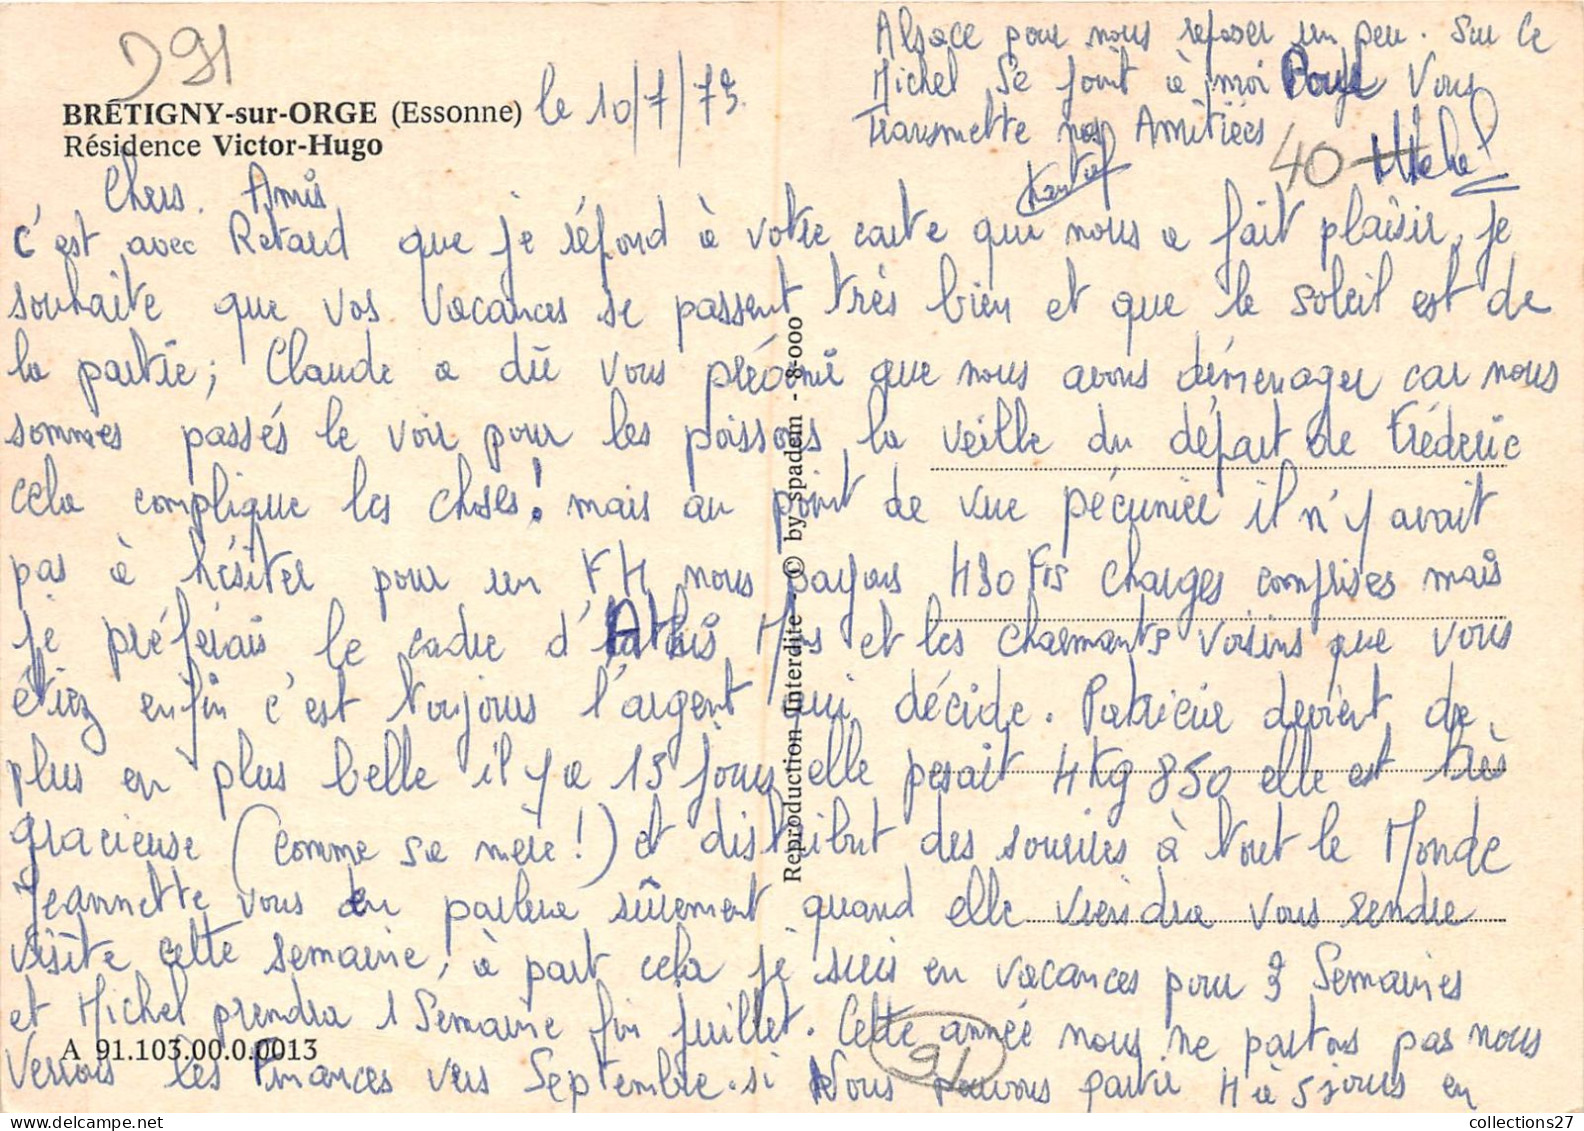 D91
BRÉTIGNY-sur-ORGE (Essonne)
Résidence Victor-Hugo
le 10/7/73.
Chers. Amis
c'est avec Retard que je répond à votre carte qui nous a fait plaisir, je
souhaite que vos vacances se passent très bien et que le soleil est de
la partie; Claude a dû vous prévenir que nous avons déménager car nous
sommes passés le voir pour les poissons la veille du départ de Frédéric
cela complique les choses! mais au point de vue pécunier il n'y avait
pas à hésiter pour un F4 nous payons 430 Frs charges comprises mais
je préférais le cadre d'Athis Mons et les charmants voisins que vous
étiez enfin c'est toujours l'argent qui décide. Patricia devient de
plus en plus belle il y a 15 jours elle pesait 4kg 850 elle est très
gracieuse (comme sa mère!) et distribut des sourires à tout le Monde
Jeannette vous en parlera sûrement quand elle viendra vous rendre
visite cette semaine, à part cela je suis en vacances pour 3 Semaines
et Michel prendra 1 Semaine fin juillet. Cette année nous ne partons pas nous
Verrons les Finances vers Septembre. si Nous pouvons partir 4 à 5 jours en
Alsace pour nous reposer un peu. Sur ce
Michel se joint à moi Pour Vous
Transmettre nos Amitiées
Michel
40
91
A 91.103.00.0.0013
Reproduction Interdite - © by spadem - 8-000
collections27